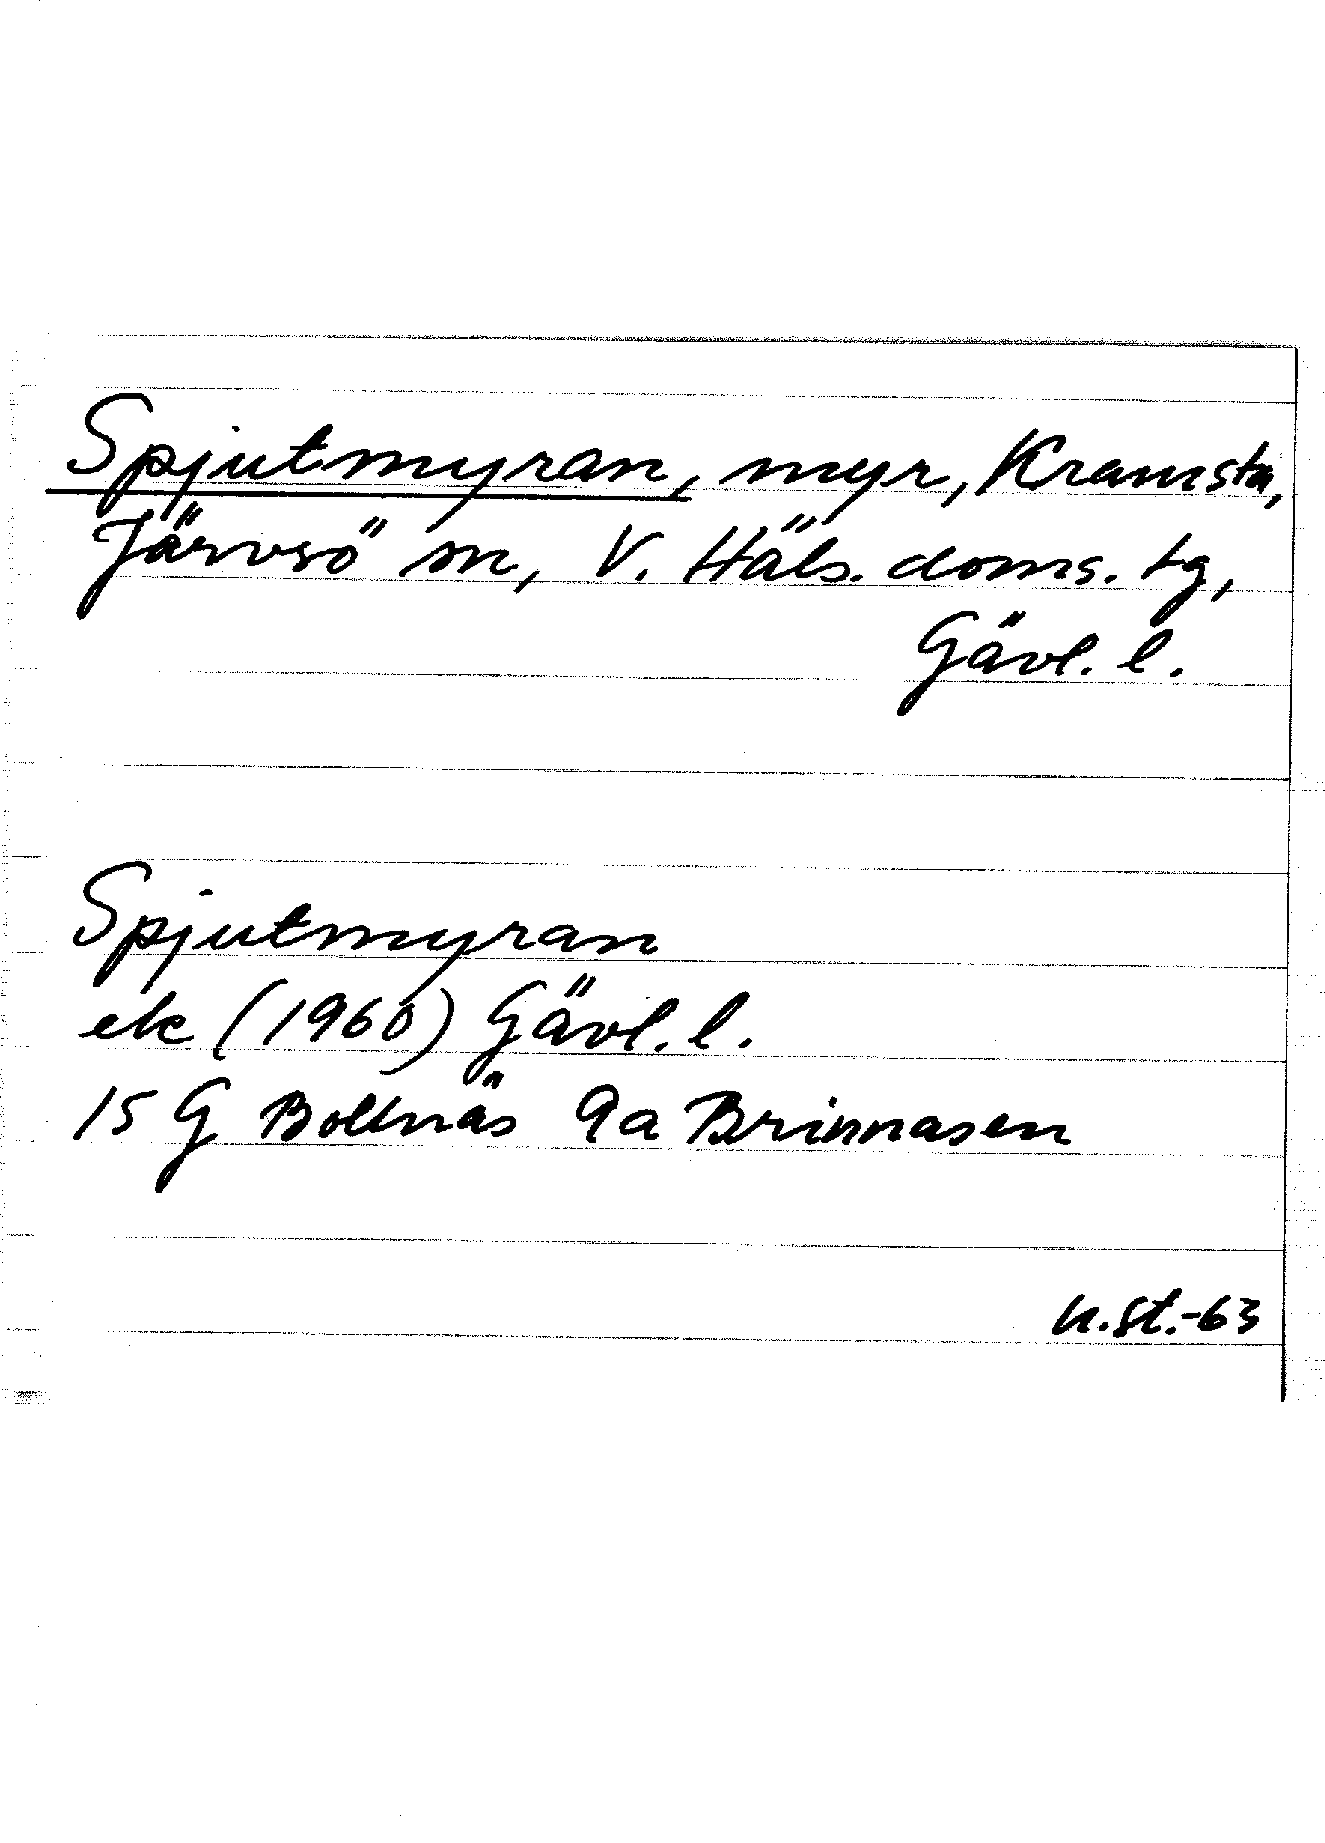 Spjutmyran, myr, Kramsta,
Järvsö sn, V. Häls. doms. tg,
Gävl. l.
Spjutmyran
ek (1960) Gävl. l.
15 G Bollnäs 9a Brinnasen
n.st.-63